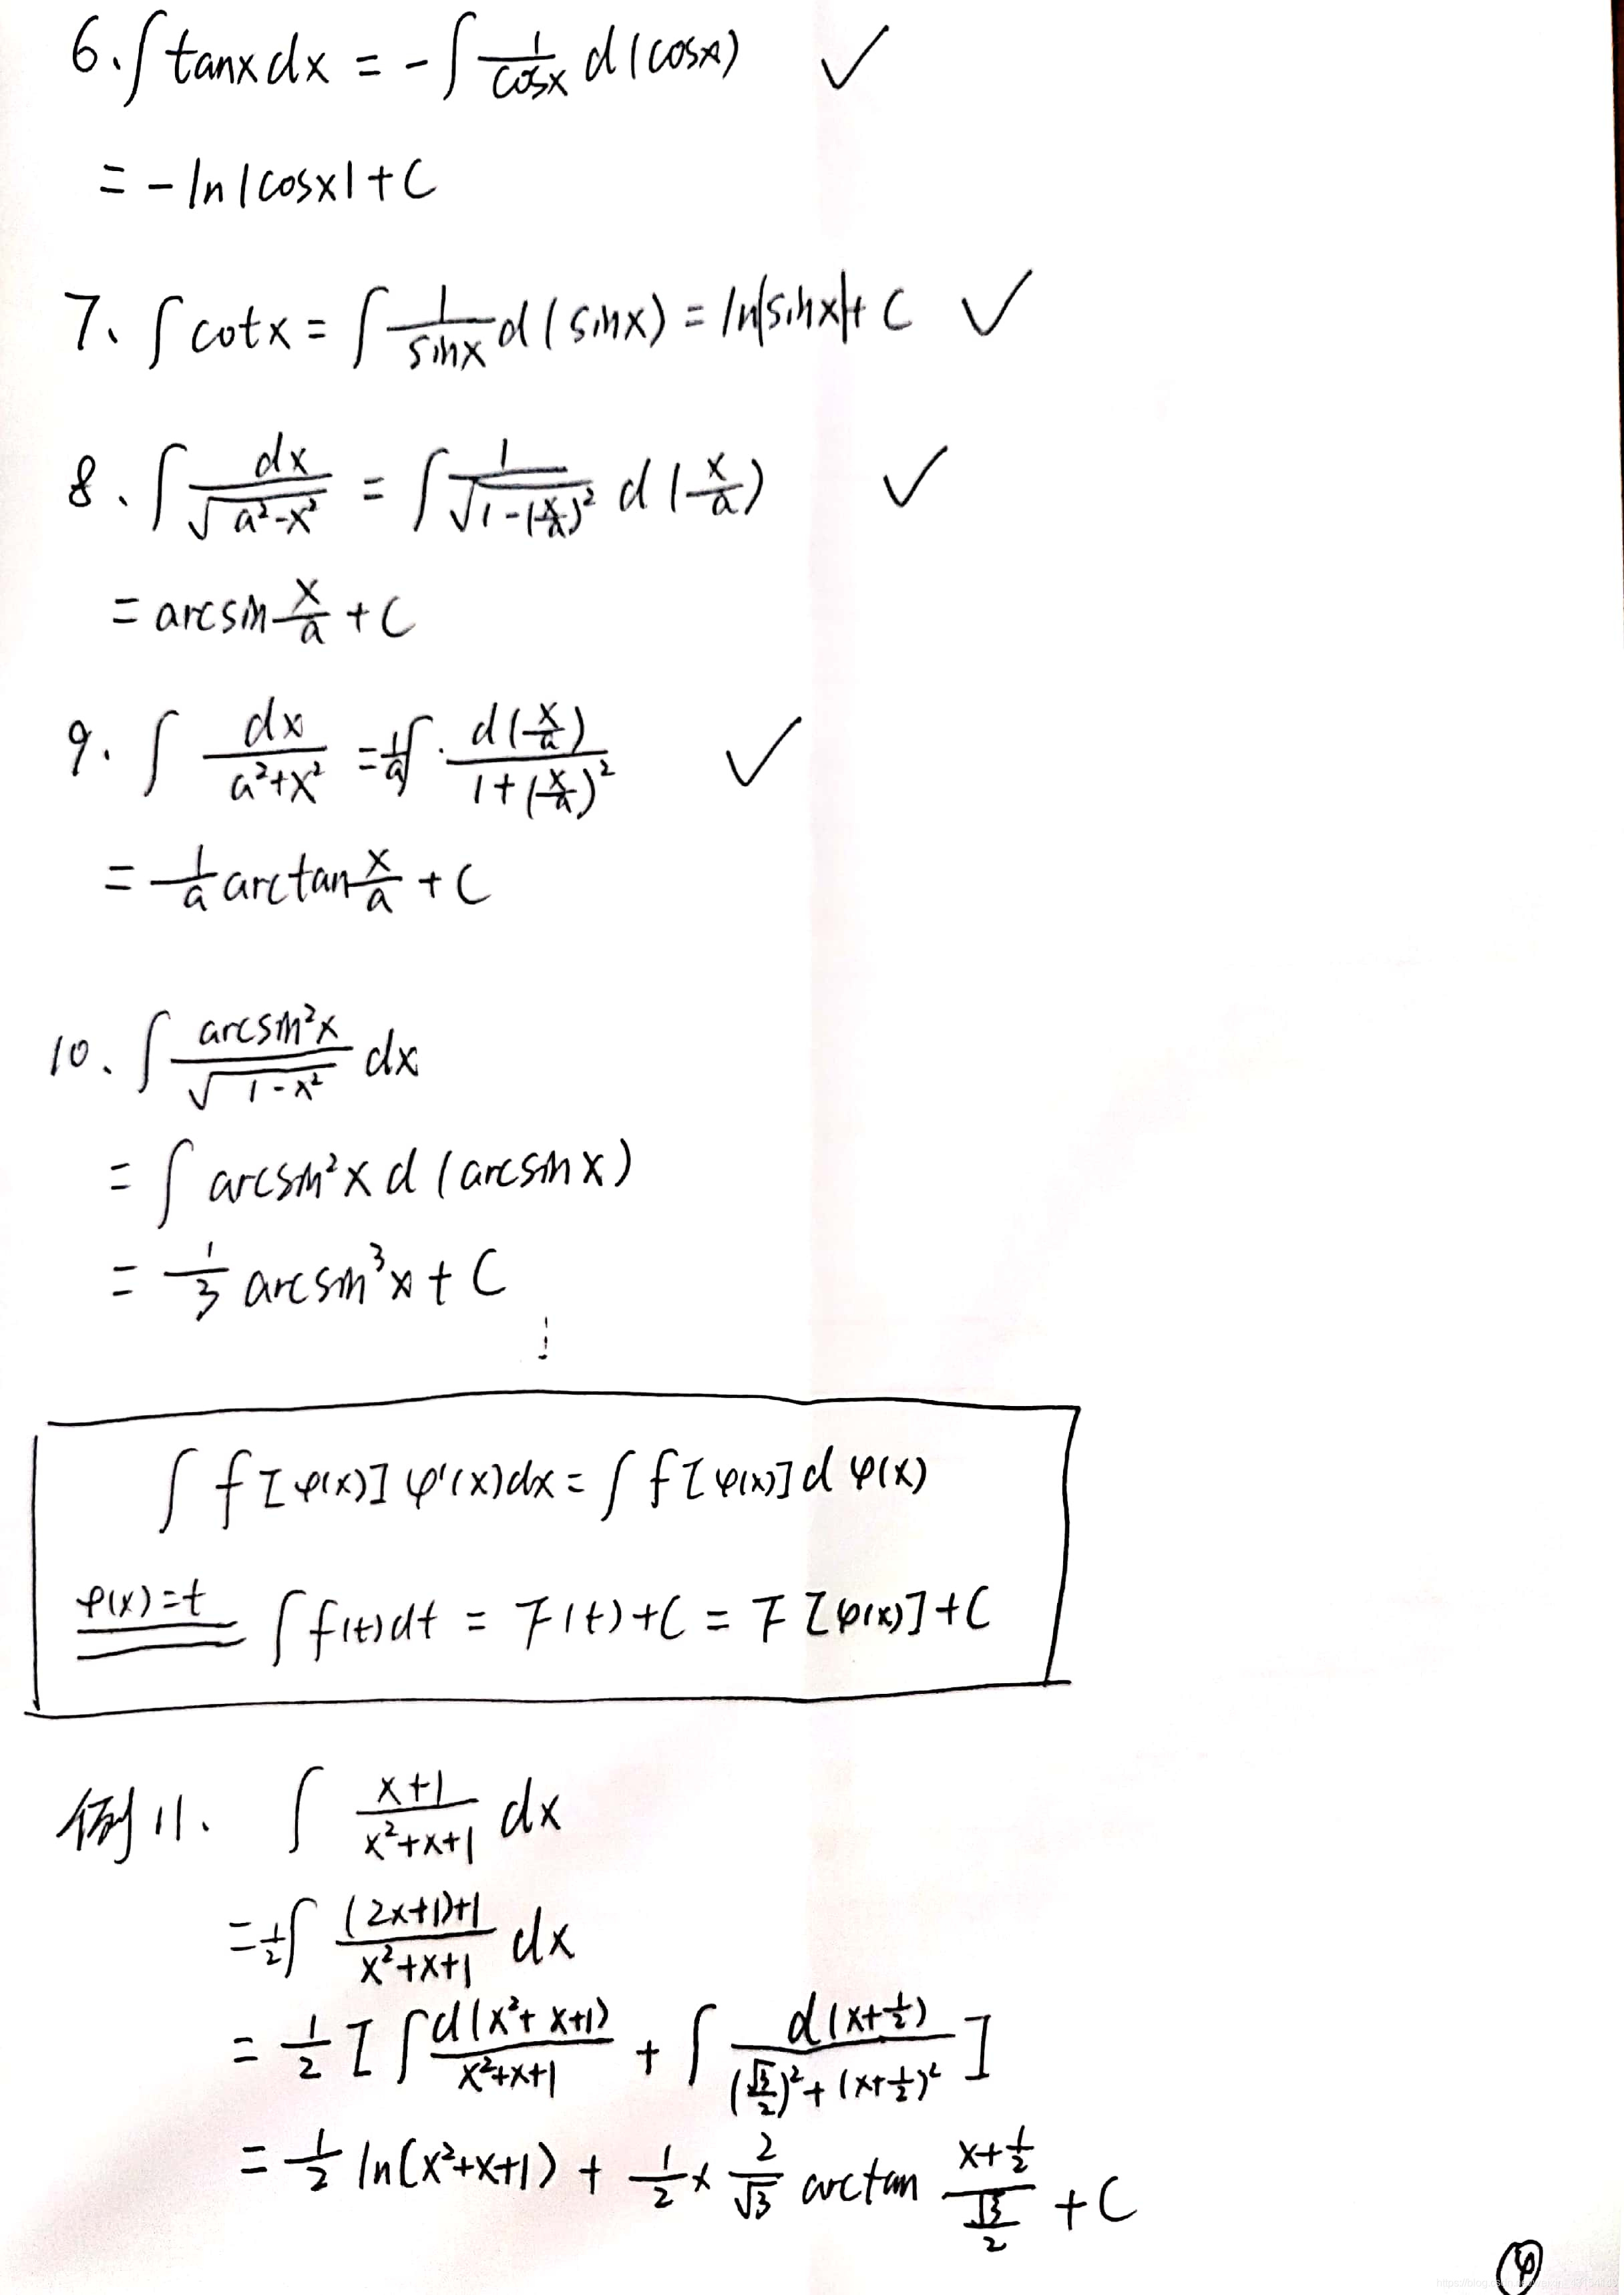 6、∫ tanx dx = -∫ 1/cosx d(cosx) ✓
= -ln|cosx|+C
7、∫ cotx = ∫ 1/sinx d(sinx) = ln|sinx|+C ✓
8、∫ dx/√(a²-x²) = ∫ 1/√(1-(x/a)²) d(x/a) ✓
= arcsin x/a + C
9、∫ dx/(a²+x²) = 1/a ∫ · d(x/a)/(1+(x/a)²) ✓
= 1/a arctan x/a + C
10、∫ arcsin²x/√(1-x²) dx
= ∫ arcsin²x d(arcsinx)
= 1/3 arcsin³x + C
∫ f[φ(x)] φ'(x)dx = ∫ f[φ(x)] d φ(x)
φ(x)=t ∫ f(t)dt = F(t)+C = F[φ(x)]+C
例11、 ∫ (x+1)/(x²+x+1) dx
= 1/2 ∫ ((2x+1)+1)/(x²+x+1) dx
= 1/2 [∫ d(x²+x+1)/(x²+x+1) + ∫ d(x+1/2)/((√3/2)²+(x+1/2)²)]
= 1/2 ln(x²+x+1) + 1/2 × 2/√3 arctan (x+1/2)/(√3/2) + C
④